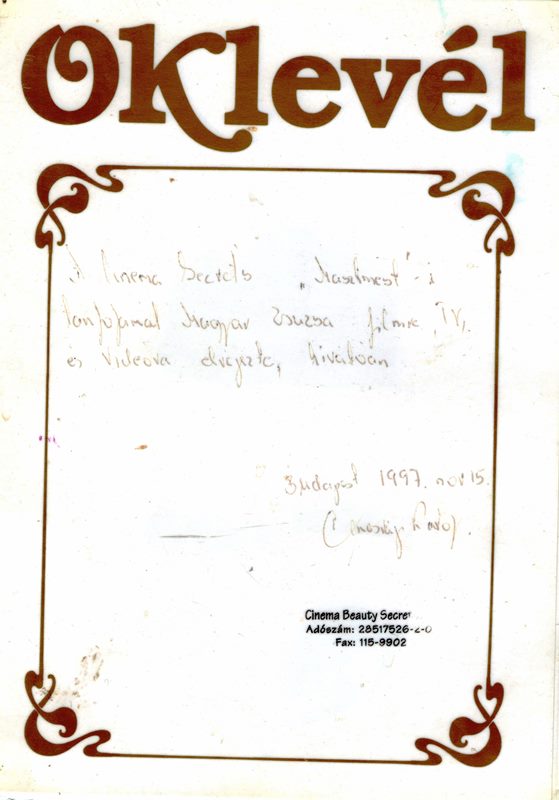 Oklevél
A Cinema Secrets „Maszkmest"-i
tanfolyamát Magyar Zsuzsa filmre, TV,
és Videóra elvégezte, kiválóan
Budapest 1997. nov 15.
Cinema Beauty Secret
Adószám: 28517526-2-0
Fax: 115-9902